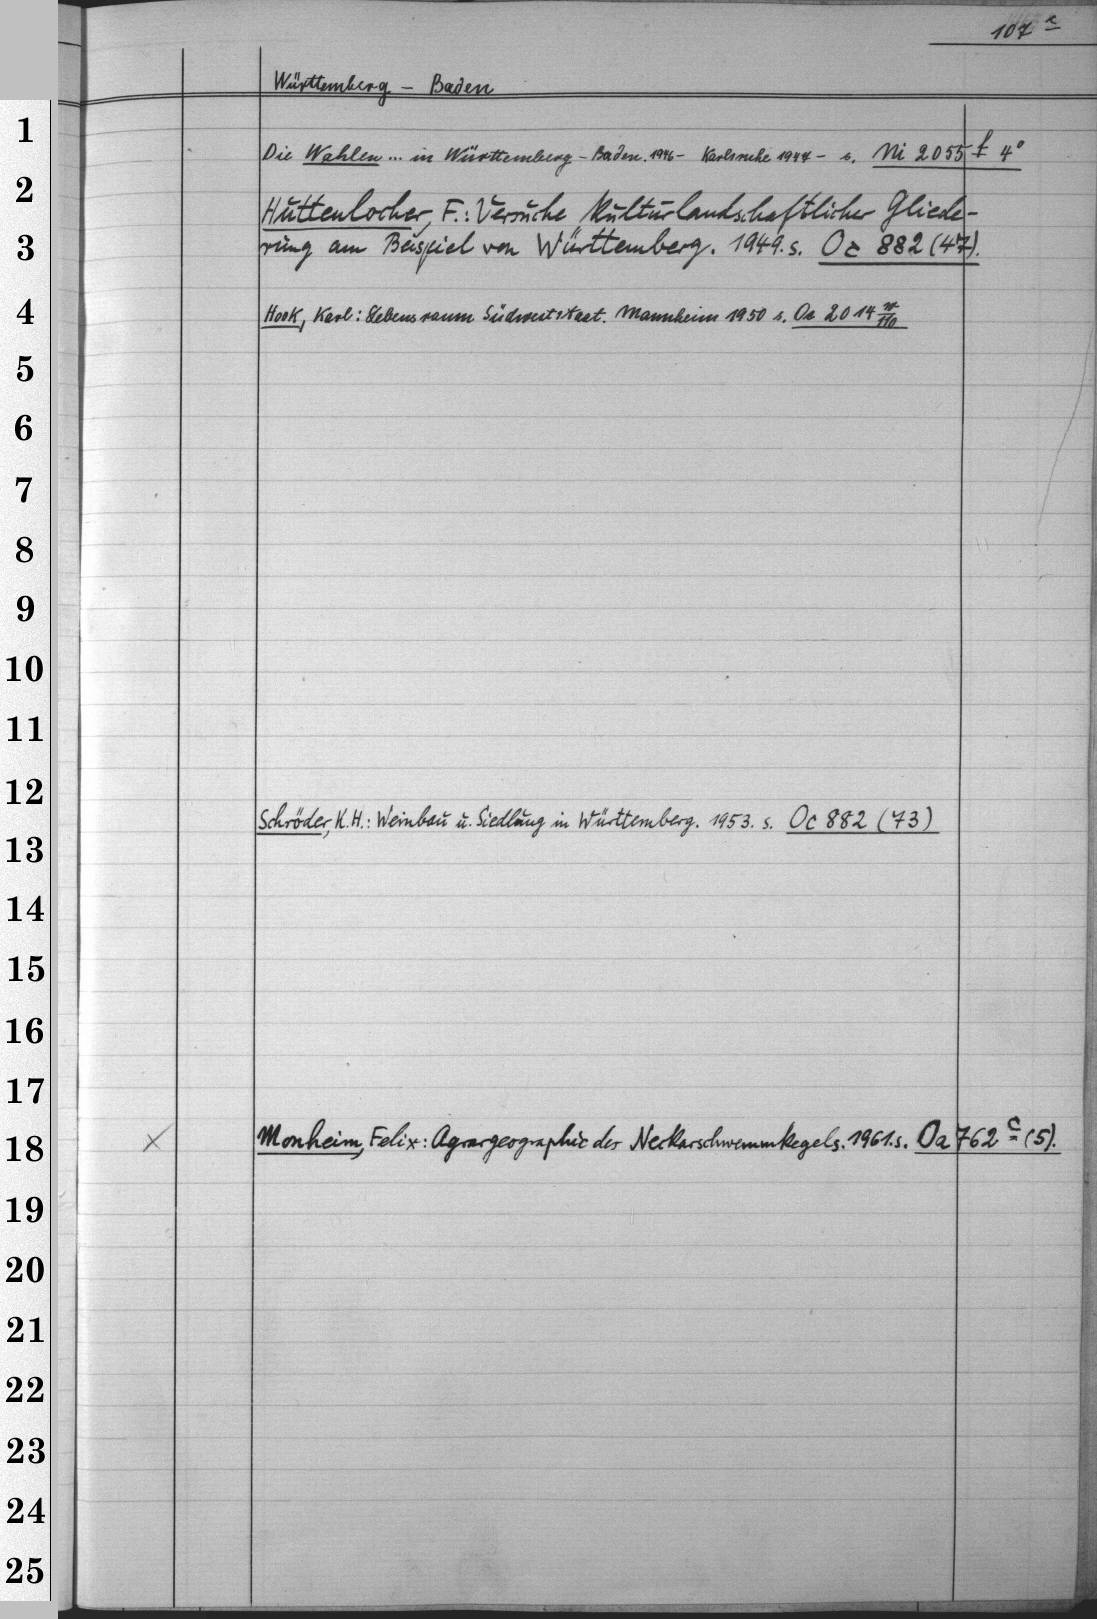 107 c
Württemberg - Baden
1
Die Wahlen ... in Württemberg - Baden. 1946 - Karlsruhe 1947 - s. Ni 2055 f 4°
2
Huttenlocher, F.: Versuche kulturlandschaftlicher Gliede-
3
rung am Beispiel von Württemberg. 1949. s. Oc 882 (47).
4
Hook, Karl: Lebensraum Südweststaat. Mannheim 1950 s. Oa 2014
5
6
7
8
9
10
11
12
Schröder, K.H.: Weinbau u. Siedlung in Württemberg. 1953. s. Oc 882 (73)
13
14
15
16
17
18
x Monheim, Felix: Agrargeographie des Neckarschwemmkegels. 1961. s. Oa 762 c (5).
19
20
21
22
23
24
25